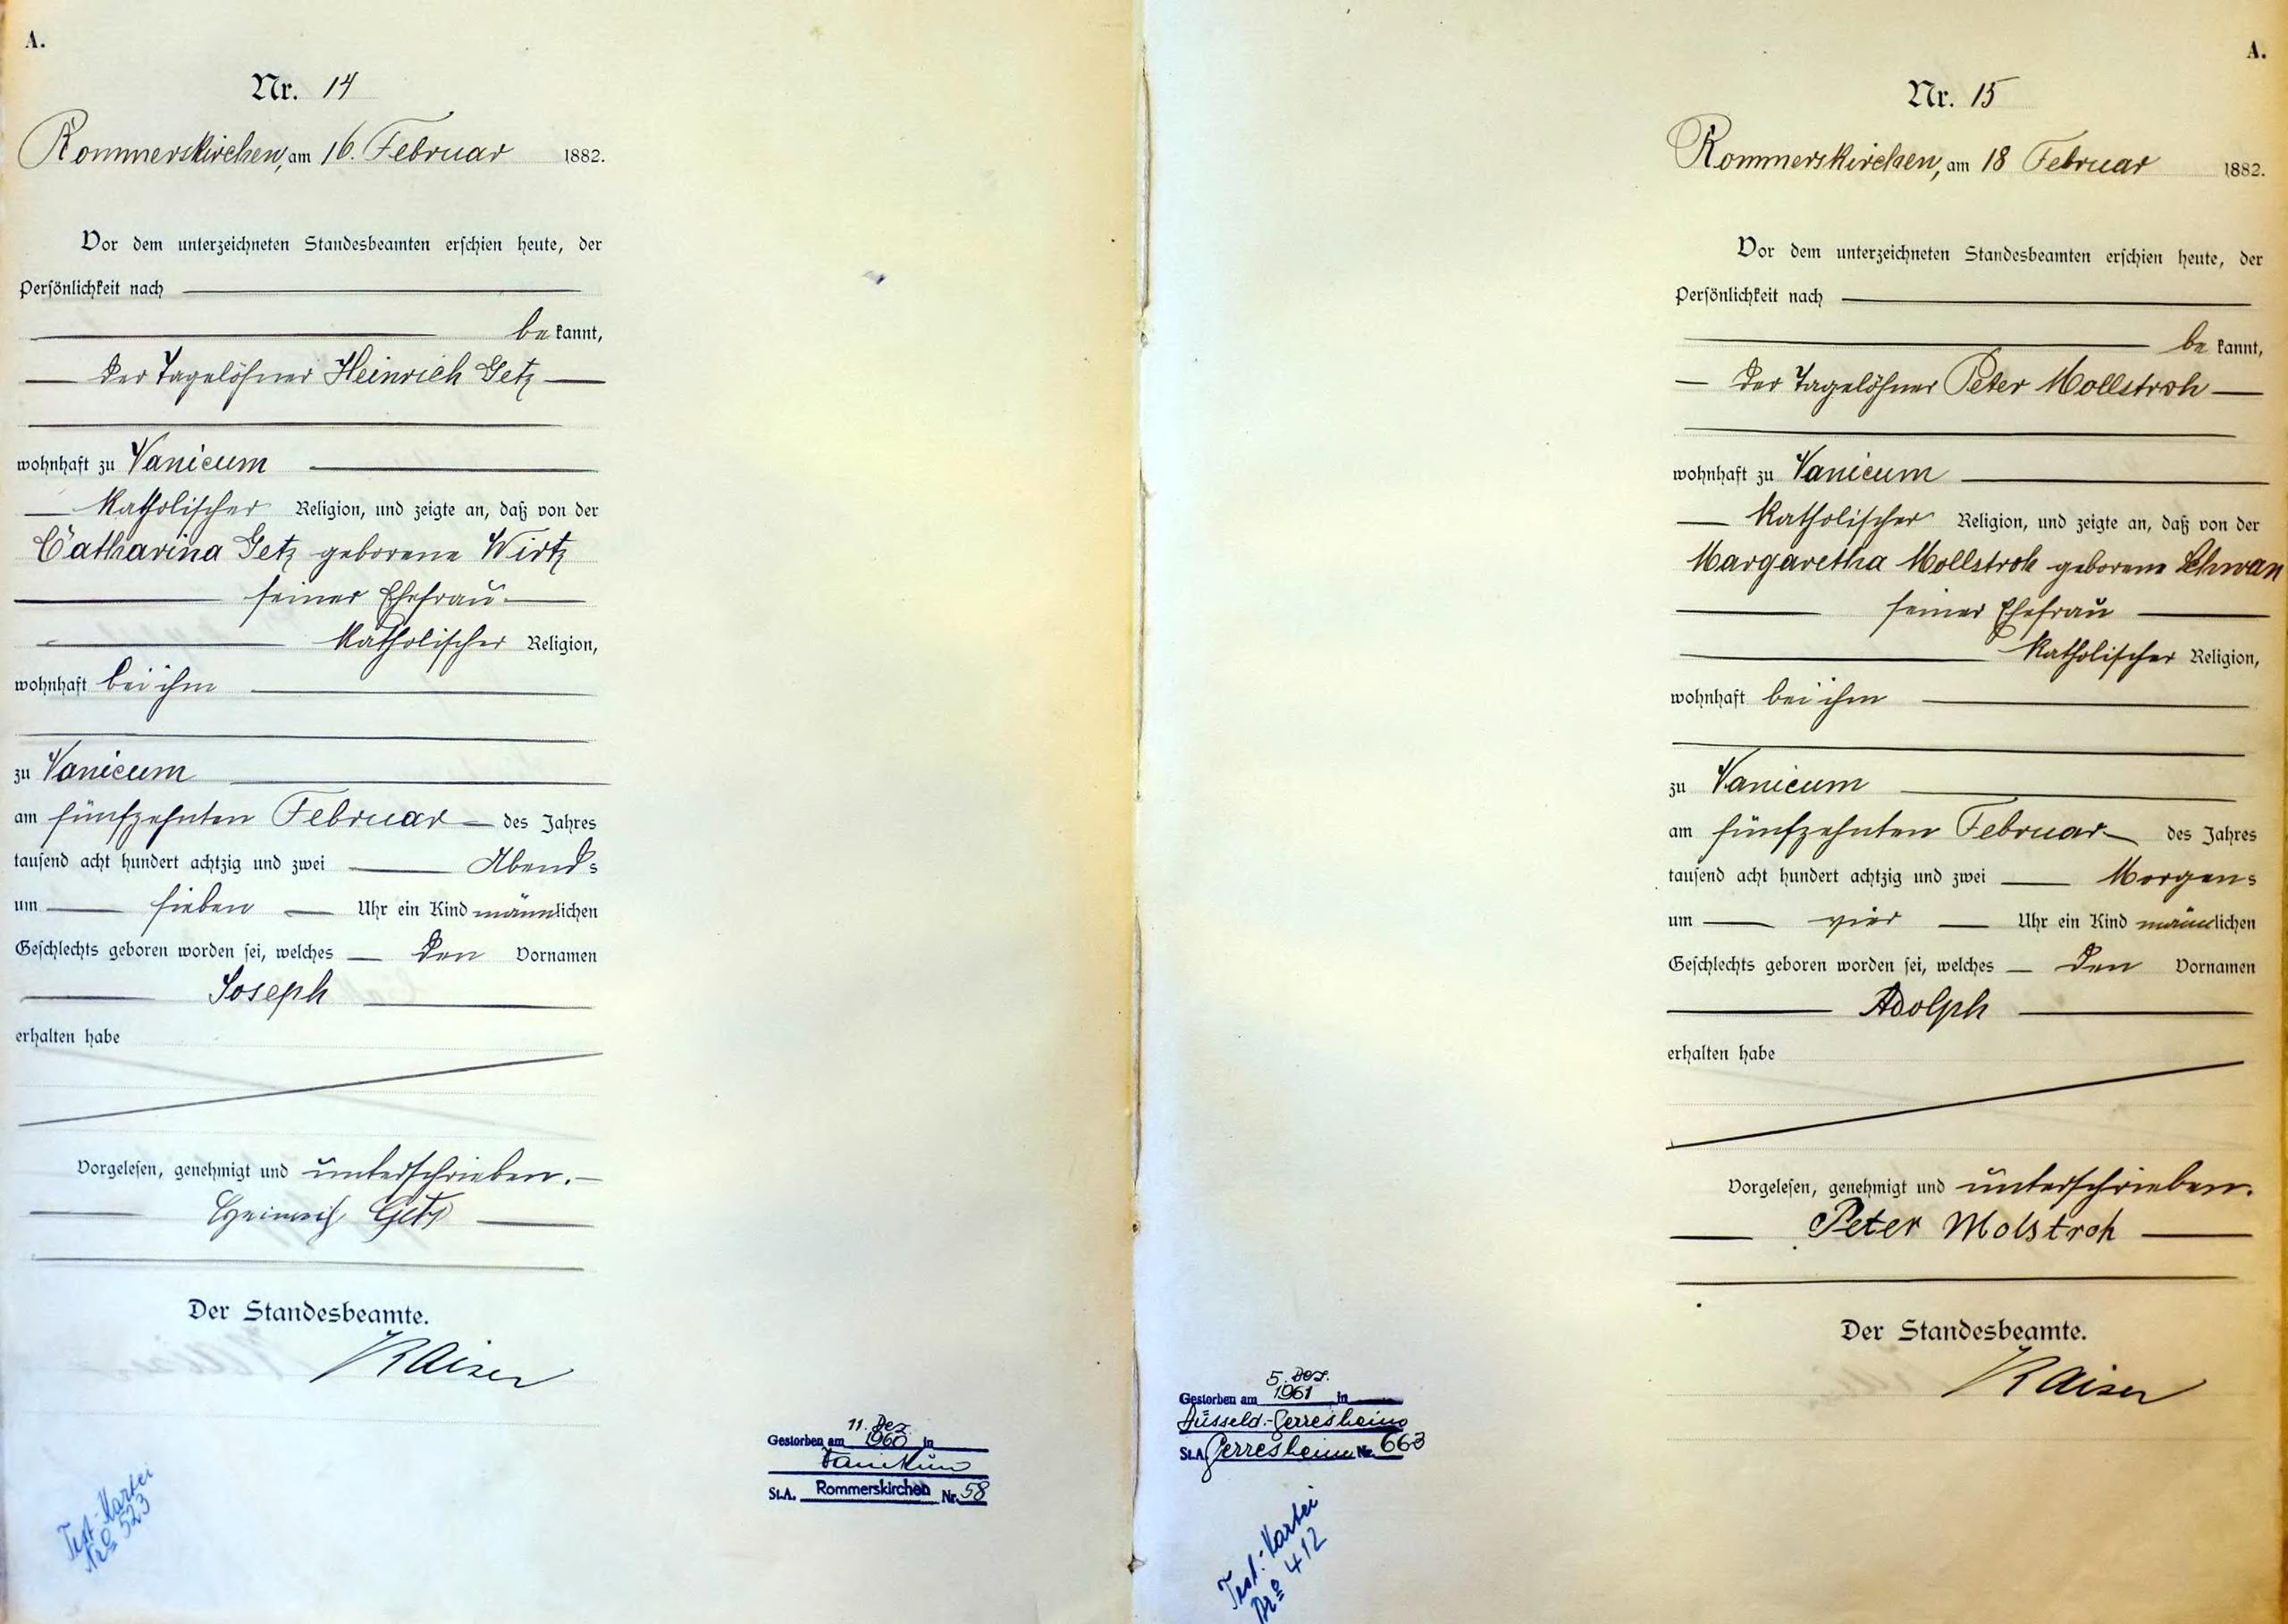 A.
Nr. 14
Rommerskirchen, am 16. Februar 1882.
Vor dem unterzeichneten Standesbeamten erschien heute, der
Persönlichkeit nach
be kannt,
der Tagelöhner Heinrich Getz
wohnhaft zu Vanicum
katholischer Religion, und zeigte an, daß von der
Catharina Getz geborene Wirtz
seiner Ehefrau
katholischer Religion,
wohnhaft bei ihm
zu Vanicum
am fünfzehnten Februar des Jahres
tausend acht hundert achtzig und zwei Abends
um sieben Uhr ein Kind männlichen
Geschlechts geboren worden sei, welches den Vornamen
Joseph
erhalten habe
Vorgelesen, genehmigt und unterschrieben.
Heinrich Getz
Der Standesbeamte.
Kaiser
11. Dez.
Gestorben am 1960 in
Vanikum
St.A. Rommerskirchen Nr. 58
Test-Kartei
Nro 523
A.
Nr. 15
Rommerskirchen, am 18 Februar 1882.
Vor dem unterzeichneten Standesbeamten erschien heute, der
Persönlichkeit nach
be kannt,
der Tagelöhner Peter Mollstroh
wohnhaft zu Vanicum
katholischer Religion, und zeigte an, daß von der
Margaretha Mollstroh geborene Schwan
seiner Ehefrau
katholischer Religion,
wohnhaft bei ihm
zu Vanicum
am fünfzehnten Februar des Jahres
tausend acht hundert achtzig und zwei Morgens
um vier Uhr ein Kind männlichen
Geschlechts geboren worden sei, welches den Vornamen
Adolph
erhalten habe
Vorgelesen, genehmigt und unterschrieben.
Peter Molstroh
Der Standesbeamte.
Kaiser
5. Dez.
Gestorben am 1961 in
Düsseld.-Gerresheim
St.A. Gerresheim Nr. 663
Test-Kartei
Nro 412